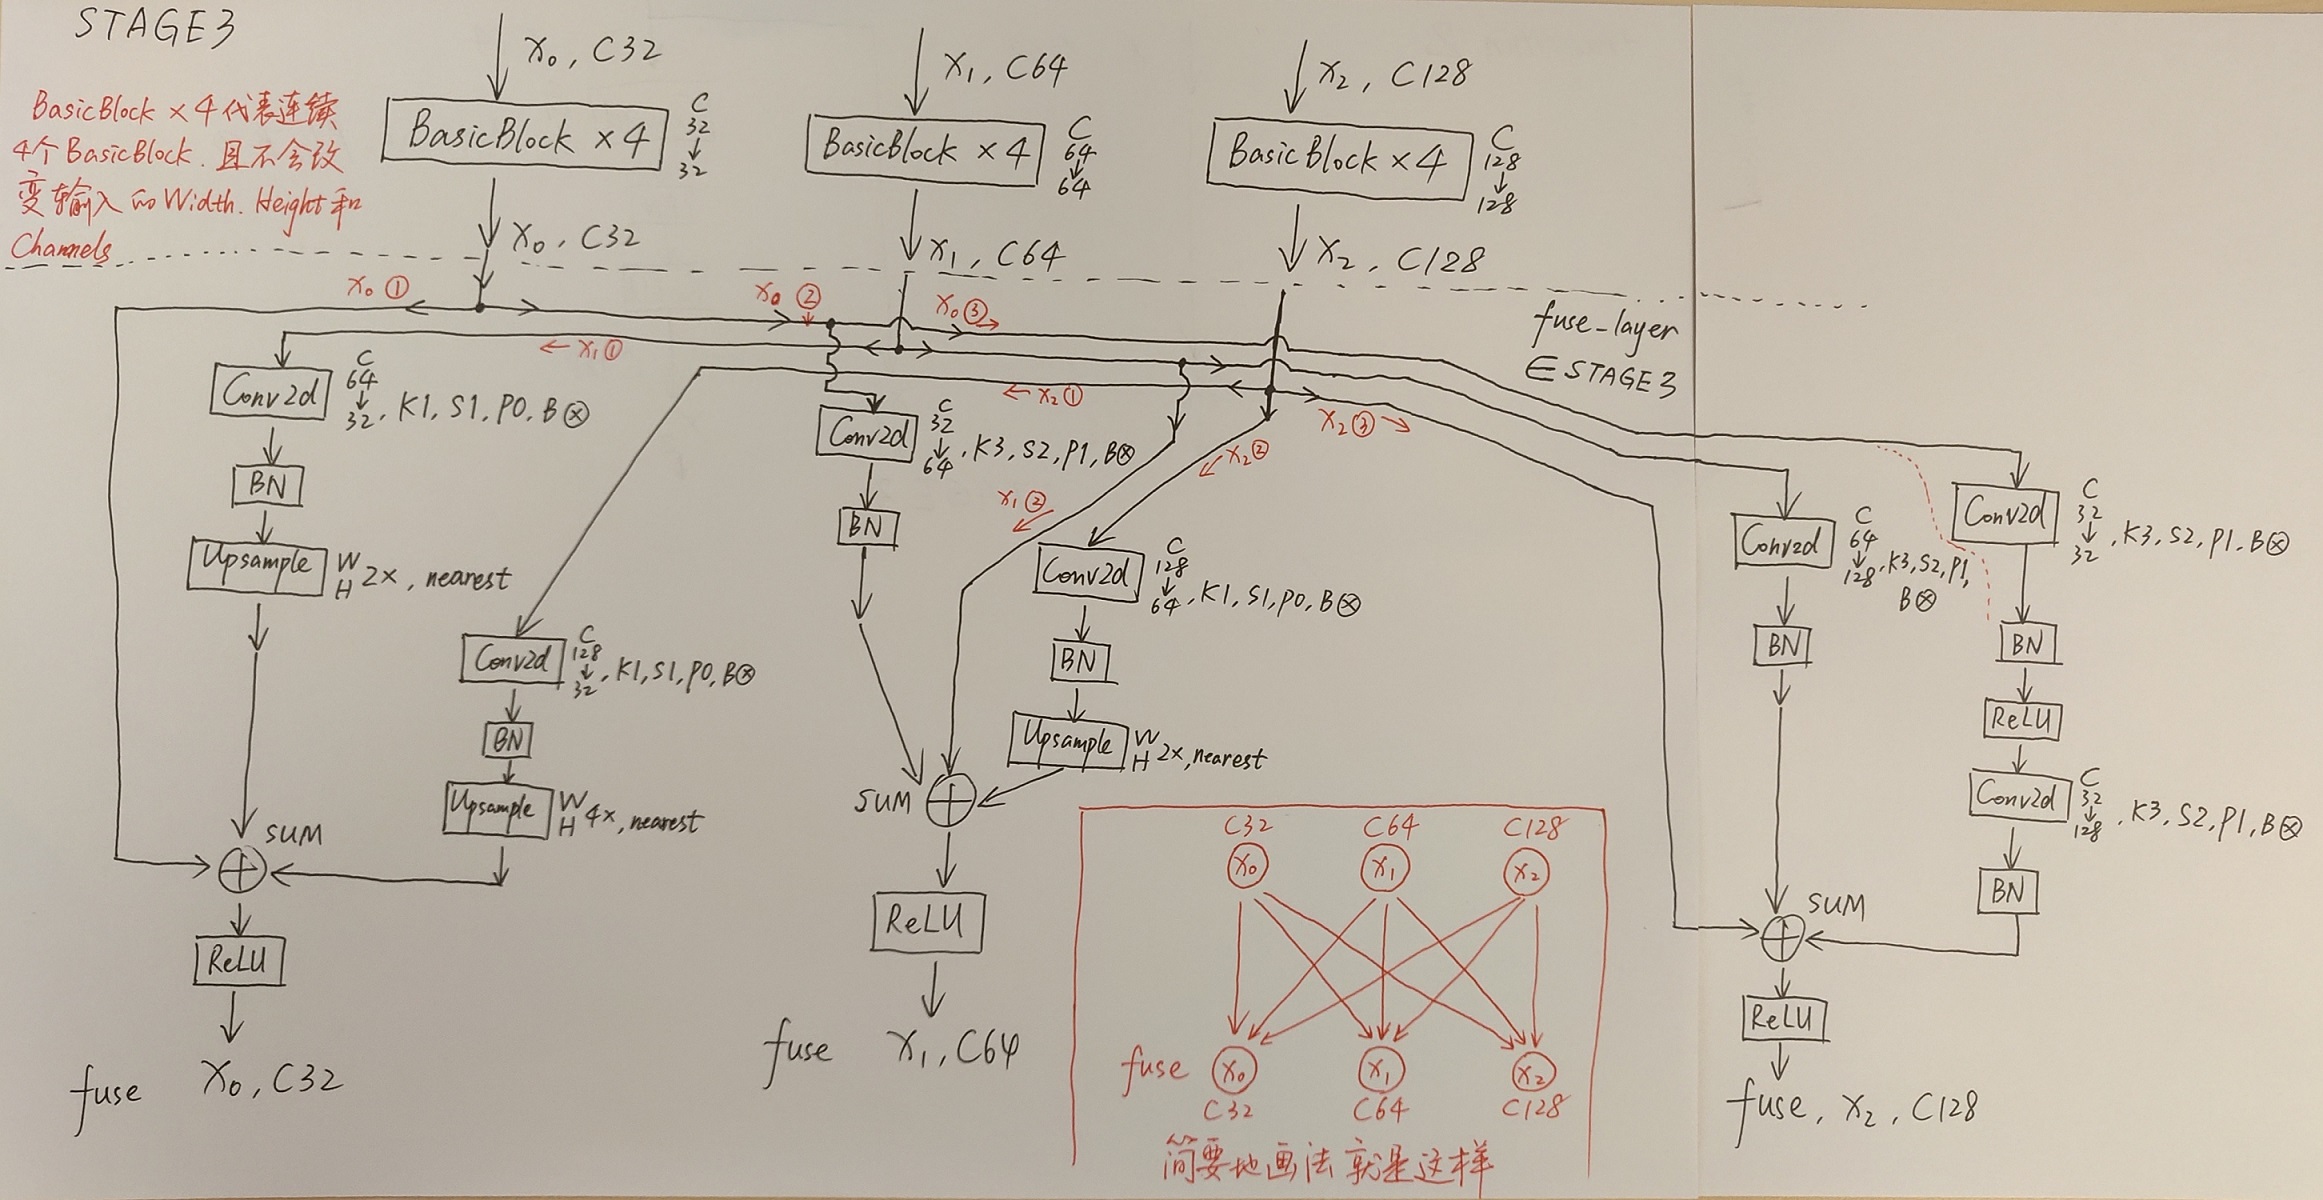 STAGE3
X₀, C32
X₁, C64
X₂, C128
BasicBlock × 4 代表连续
4个BasicBlock. 且不会改
变输入的Width. Height和
Channels
BasicBlock × 4
C
32
↓
32
BasicBlock × 4
C
64
↓
64
BasicBlock × 4
C
128
↓
128
X₀, C32
X₁, C64
X₂, C128
fuse_layer
∈ STAGE3
X₀ ①
X₀ ②
X₀ ③
← X₁ ①
← X₂ ①
X₂ ③
X₂ ②
X₁ ②
Conv2d
C
64
↓
32, K1, S1, P0, B⊗
BN
Upsample
W
H 2×, nearest
Conv2d
C
128
↓
32, K1, S1, P0, B⊗
BN
Upsample
W
H 4×, nearest
SUM
ReLU
fuse X₀, C32
Conv2d
C
32
↓
64, K3, S2, P1, B⊗
BN
Conv2d
C
128
↓
64, K1, S1, P0, B⊗
BN
Upsample
W
H 2×, nearest
SUM
ReLU
fuse X₁, C64
C32 C64 C128
X₀ X₁ X₂
fuse X₀ X₁ X₂
C32 C64 C128
简要地画法就是这样
Conv2d
C
64
↓
128, K3, S2, P1,
B⊗
BN
Conv2d
C
32
↓
32, K3, S2, P1, B⊗
BN
ReLU
Conv2d
C
32
↓
128, K3, S2, P1, B⊗
BN
SUM
ReLU
fuse, X₂, C128